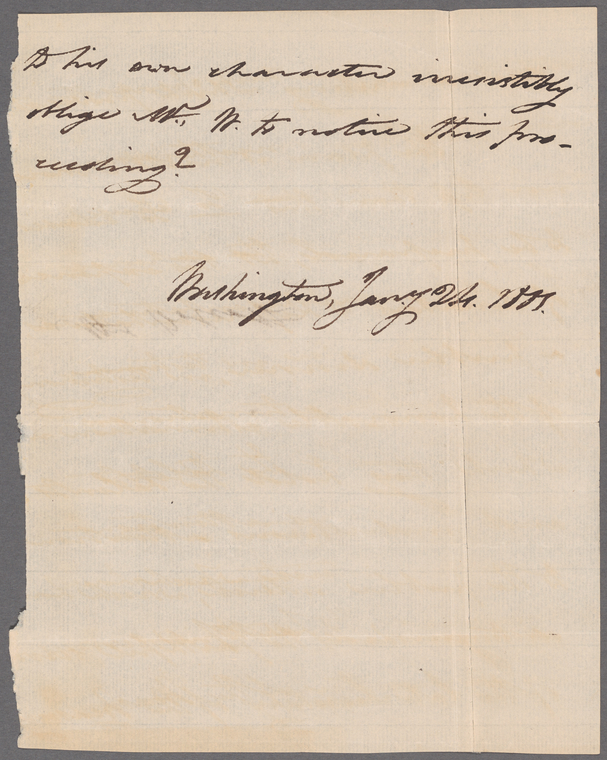 to his own character irresistibly
oblige Mr. W. to notice this pro-
ceeding?
Washington, Jany 24. 1801.